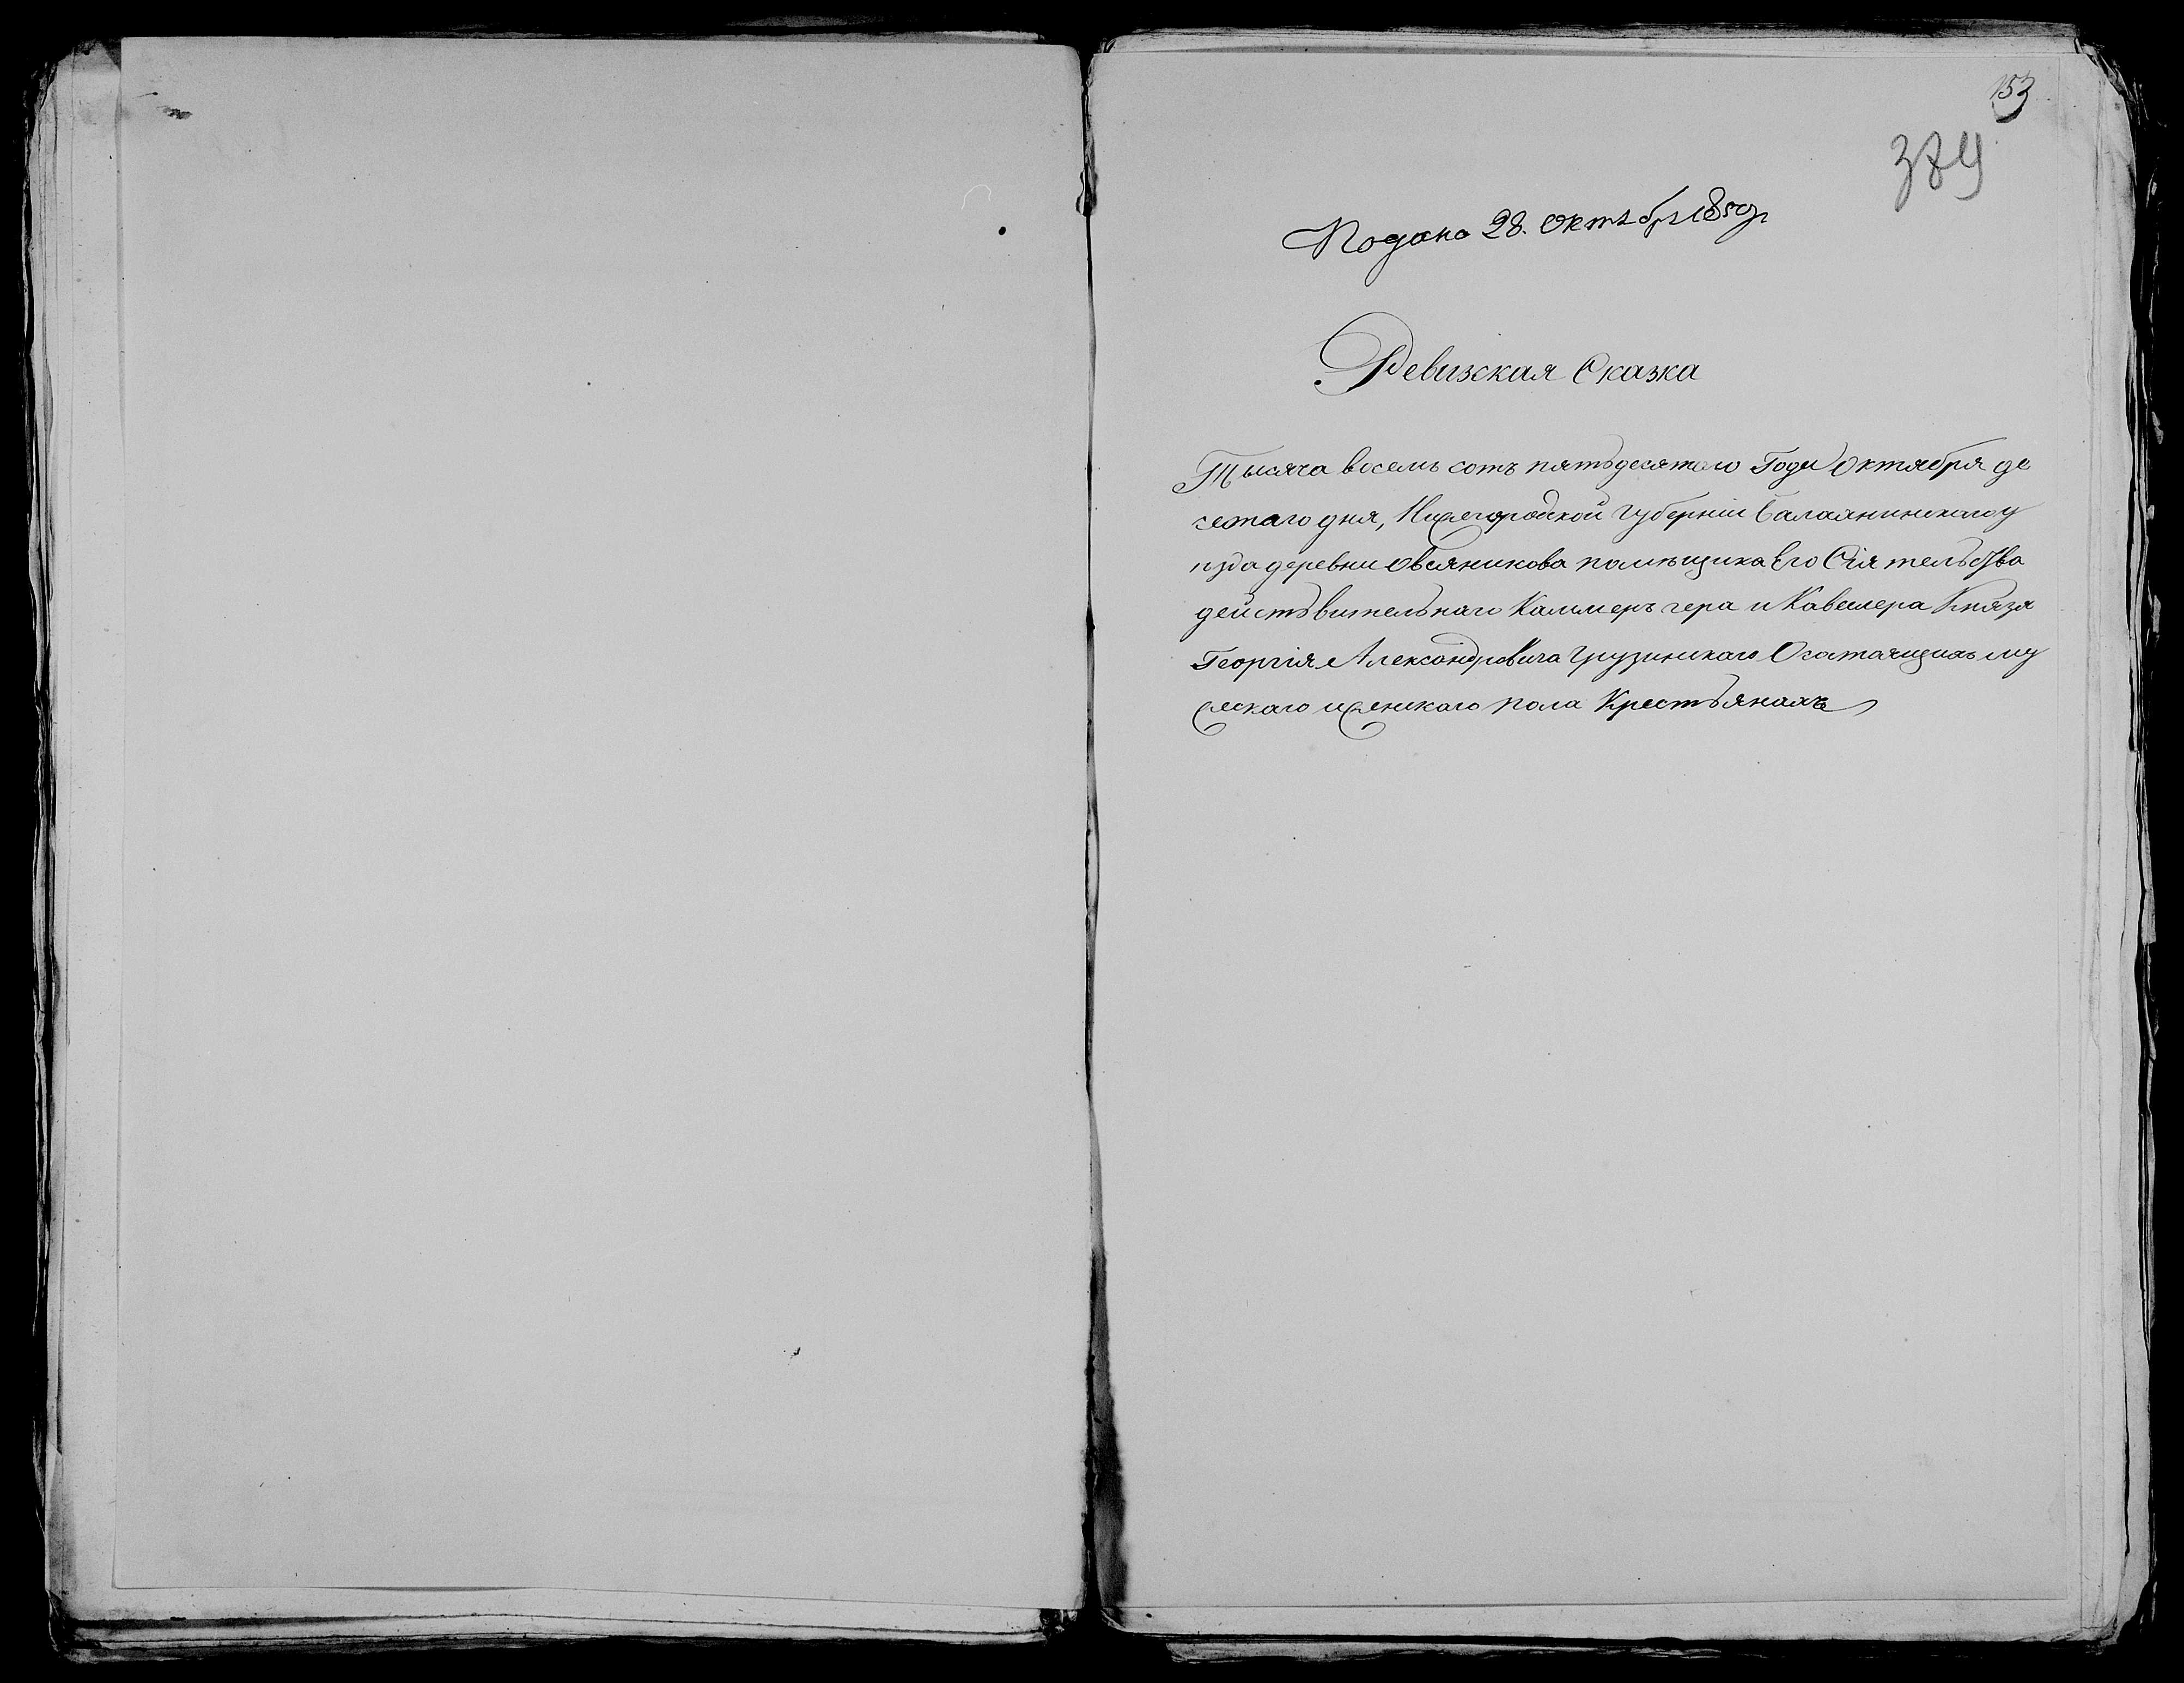 153
379
Подана 28. Октября 1850 г
Ревизская Сказка
Тысяча восемь сотъ пятьдесятаго Года Октября де
сетаго дня, Нижегородской губерніи Балахнинскаго у
езда деревни Овсяникова помѣщика Его Сіятельства
действительнаго Каммергера и Кавалера Князя
Георгія Александровича Грузинскаго О состоящихъ му
жскаго и женскаго пола Крестьянахъ